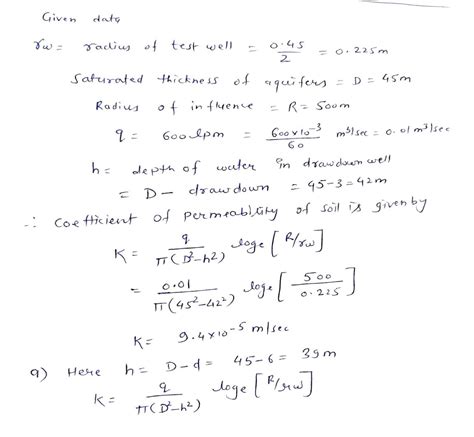 Given data
rw = radius of test well = 0.45/2 = 0.225m
Saturated thickness of aquifers = D = 45m
Radius of influence = R = 500m
q = 600lpm = 600x10^-3/60 m³/sec = 0.01 m³/sec
h = depth of water in drawdown well
= D - drawdown = 45-3 = 42m
∴ Coefficient of permeability of soil is given by
K = q/π(D²-h²) loge [R/rw]
= 0.01/π(45²-42²) loge [500/0.225]
K = 9.4x10^-5 m/sec
a) Here h = D-d = 45-6 = 39m
K = q/π(D²-h²) loge [R/rw]